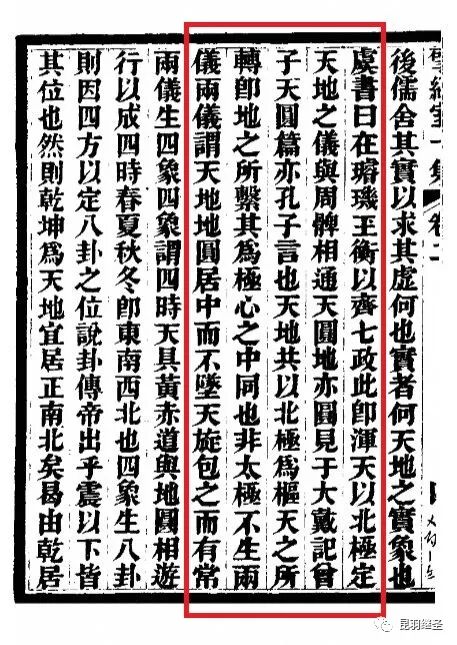 後儒舍其實以求其虚何也實者何天地之實象也
虞書曰在璿璣玉衡以齊七政此卽渾天以北極定
天地之儀與周髀相通天圓地亦圓見于大戴記曾
子天圓篇亦孔子言也天地共以北極爲樞天之所
轉卽地之所繫其爲極心之中同也非太極不生兩
儀兩儀謂天地地圓居中而不墜天旋包之而有常
兩儀生四象四象謂四時天具黃赤道與地圓相遊
行以成四時春夏秋冬卽東南西北也四象生八卦
則因四方以定八卦之位說卦傳帝出乎震以下皆
其位也然則乾坤爲天地宜居正南北矣曷由乾居
昆羽继圣